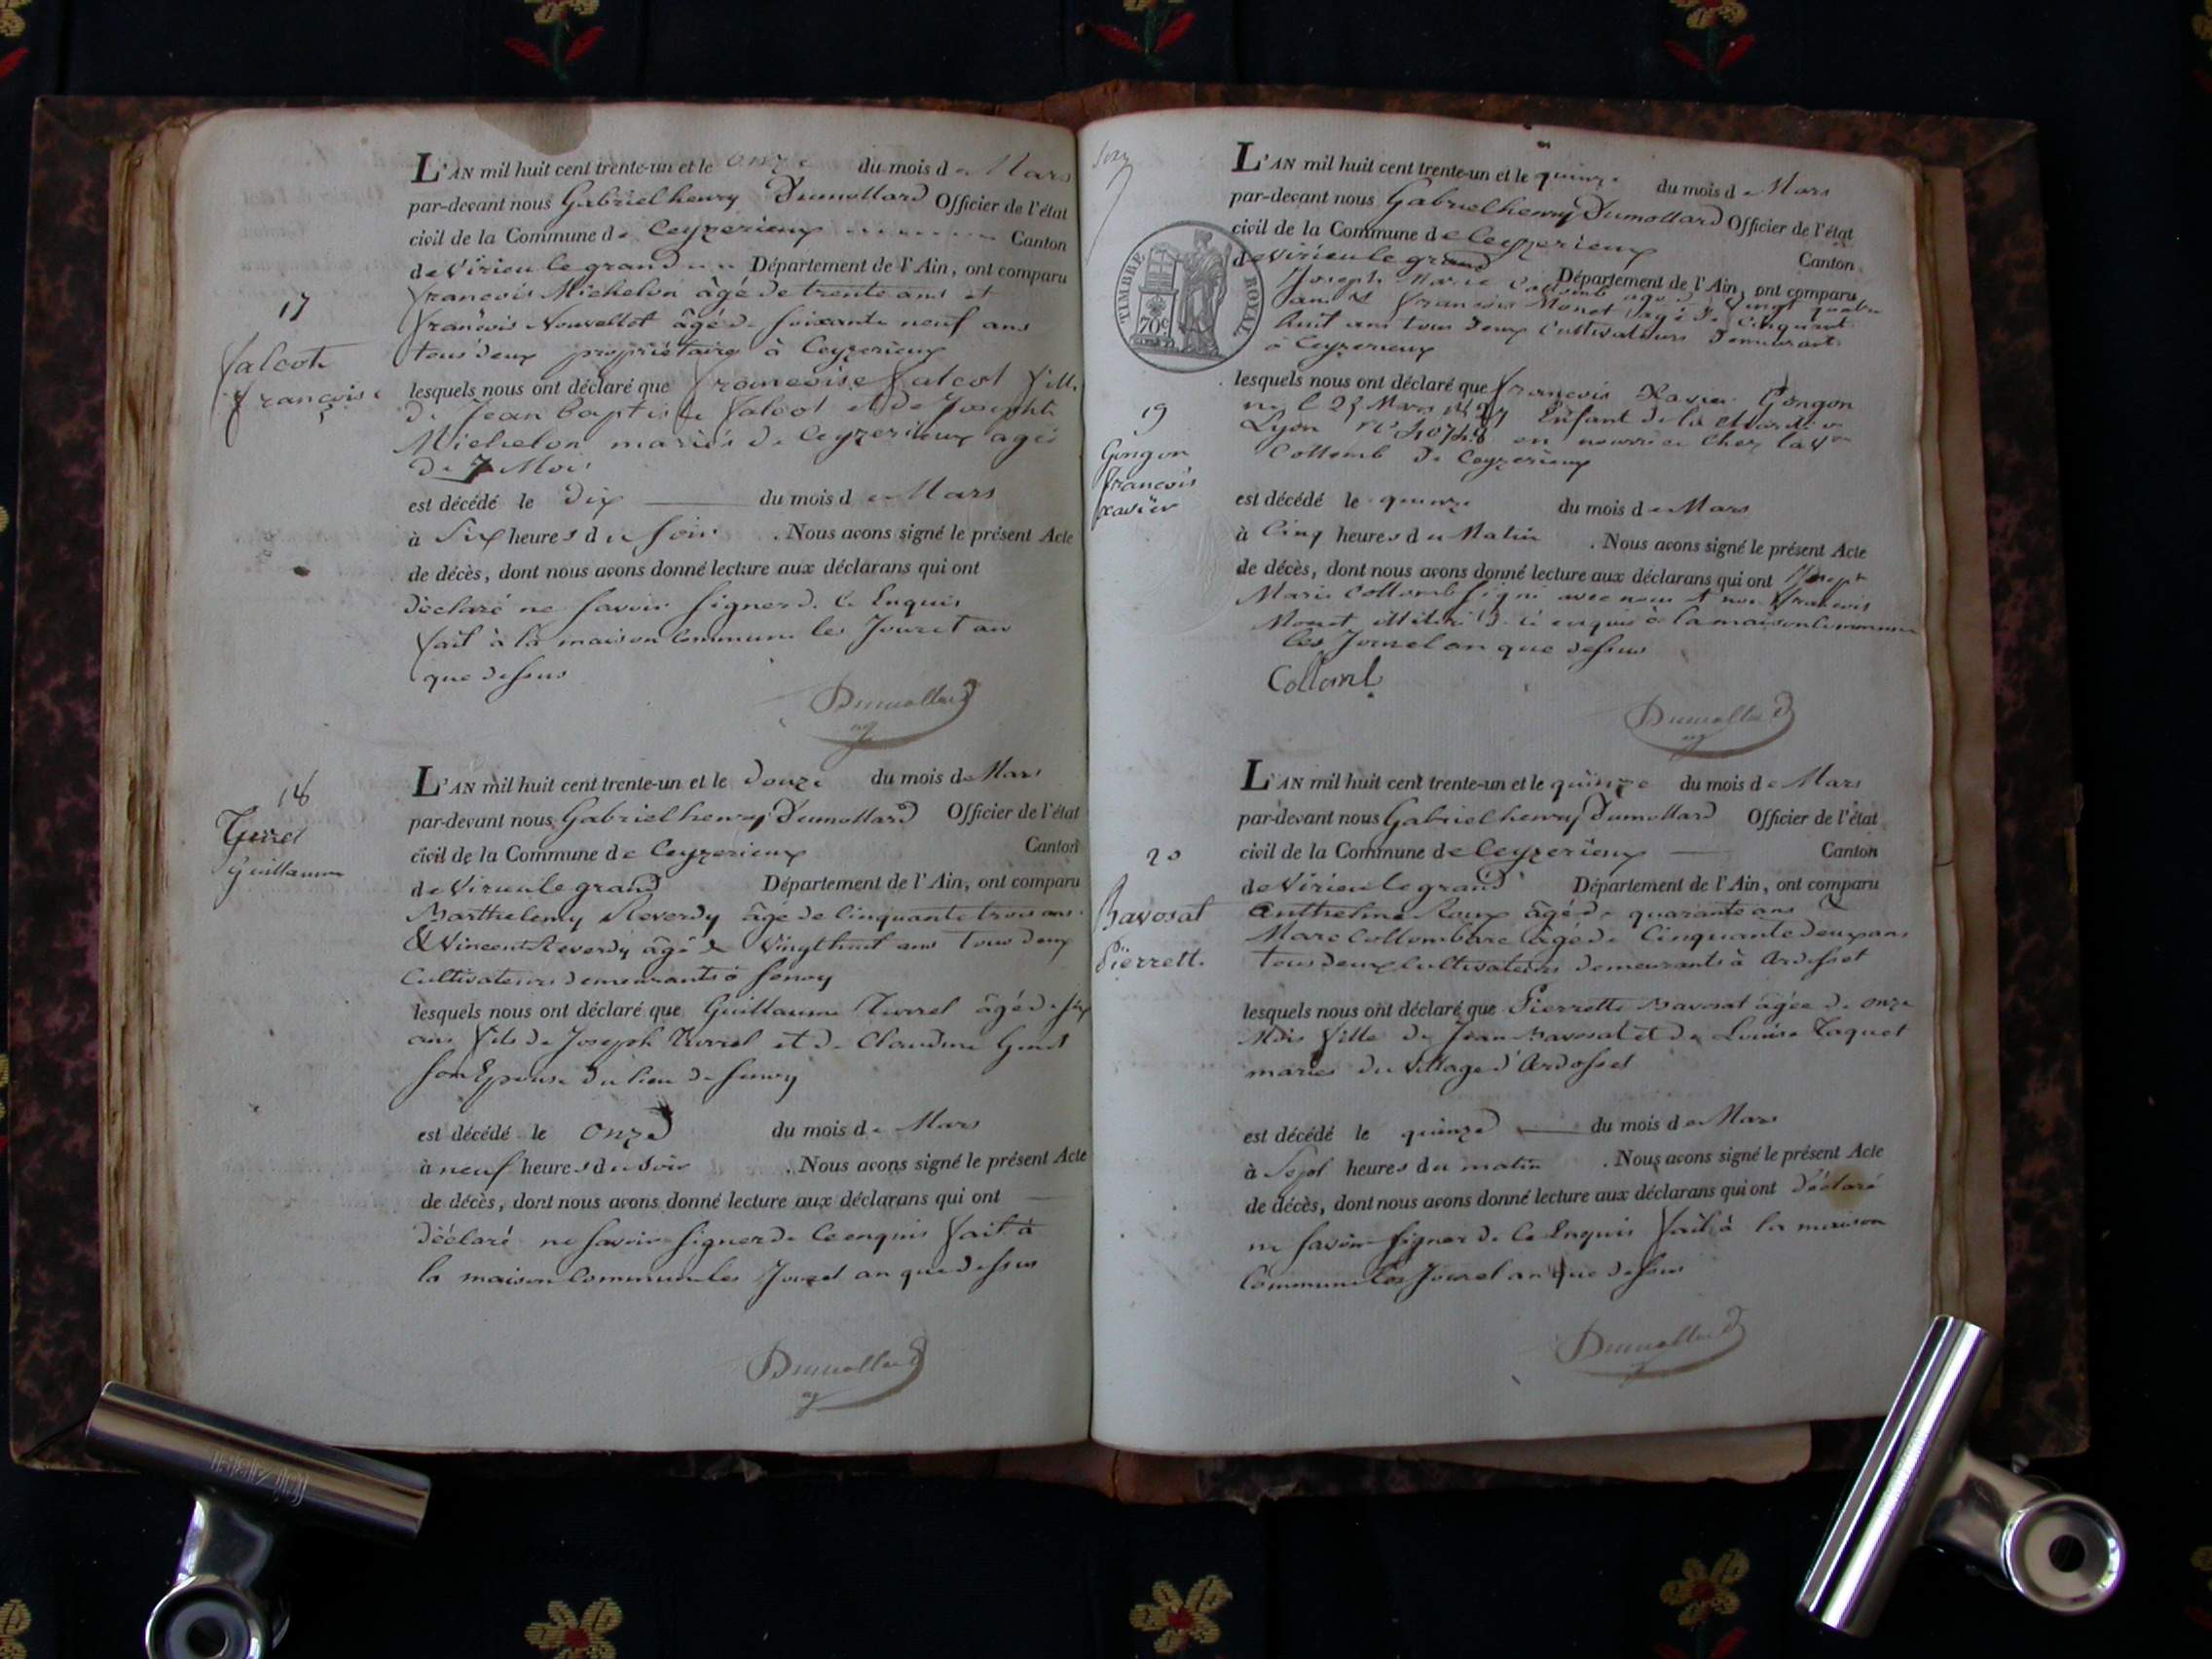 L'AN mil huit cent trente-un et le onze du mois de Mars
par-devant nous Gabriel henry Dumollard Officier de l'état
civil de la Commune de Ceyzerieux Canton
de Virieu le grand Département de l'Ain, ont comparu
francois Michelon âgé de trente ans et
francois Nouvellet âgé de soixante neuf ans
tous deux propriétaire à Ceyzerieux
lesquels nous ont déclaré que francoise falcot fille
de Jean baptiste falcot et de Josephte
Michelon mariés de Ceyzerieux agée
de 7 Mois
est décédé le dix du mois de Mars
à Six heures du Soir . Nous avons signé le présent Acte
de décès, dont nous avons donné lecture aux déclarans qui ont
déclaré ne savoir signer de ce Enquis
fait à la maison Commune les Jour et an
que dessus
Dumollard
17
falcot
francoise
L'AN mil huit cent trente-un et le douze du mois de Mars
par-devant nous Gabriel henry Dumollard Officier de l'état
civil de la Commune de Ceyzerieux Canton
de Virieu le grand Département de l'Ain, ont comparu
Barthelemy Reverdy âgé de Cinquante trois ans
& Vincent Reverdy âgé de Vingt huit ans Tous deux
Cultivateurs demeurants à
lesquels nous ont déclaré que Guillaume Turrel âgé de six
ans fils de Joseph Turrel et de Claudine
son Epouse du lieu de
est décédé le onze du mois de Mars
à neuf heures du Soir . Nous avons signé le présent Acte
de décès, dont nous avons donné lecture aux déclarans qui ont
déclaré ne savoir signer de Ce enquis fait à
la maison Commune les Jour et an que dessus
Dumollard
18
Guillaume
L'AN mil huit cent trente-un et le quinze du mois de Mars
par-devant nous Gabriel henry Dumollard Officier de l'état
civil de la Commune de Ceyzerieux Canton
de Virieu le grand Département de l'Ain, ont comparu
Joseph Marie Collomb agé de Vingt quatre
ans & francois Monet agé de Cinquante
huit ans tous deux Cultivateurs demeurant
à Ceyzerieux
lesquels nous ont déclaré que francois Xavier Gongon
né le 23 Mars Enfant de la charité
Lyon n° en nourrice chez la
Collomb de Ceyzerieux
est décédé le quinze du mois de Mars
à Cinq heures du Matin . Nous avons signé le présent Acte
de décès, dont nous avons donné lecture aux déclarans qui ont Joseph
Marie Collomb signé avec nous & non francois
Monet illitéré de ce enquis à la maison Commune
les Jour et an que dessus
Collomb
Dumollard
TIMBRE ROYAL
70c
19
Gongon
francois
xavier
L'AN mil huit cent trente-un et le quinze du mois de Mars
par-devant nous Gabriel henry Dumollard Officier de l'état
civil de la Commune de Ceyzerieux Canton
de Virieu le grand Département de l'Ain, ont comparu
Anthelme Roux âgé de quarante ans &
Marc Collombare âgé de Cinquante deux ans
tous deux Cultivateurs demeurants à Ardosset
lesquels nous ont déclaré que Pierrette Bavosat âgée de onze
Mois fille de Jean Bavosat et de Louise Taquet
mariés du Village d'Ardosset
est décédé le quinze du mois de Mars
à Sept heures du matin . Nous avons signé le présent Acte
de décès, dont nous avons donné lecture aux déclarans qui ont déclaré
ne savoir signer de Ce Enquis fait à la maison
Commune les Jour et an que dessus
Dumollard
20
Bavosat
Pierrette